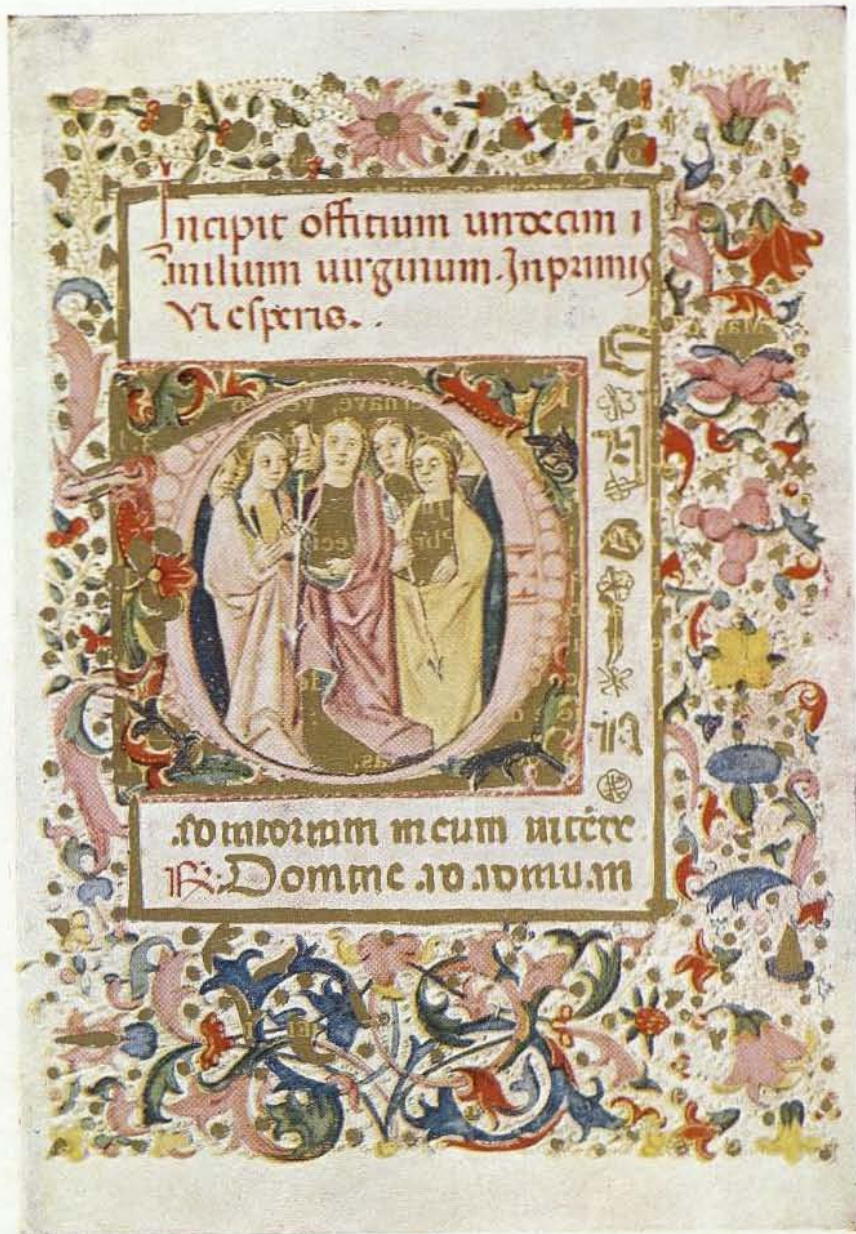 Incipit offitium undecim
milium uirginum. Inprimis
Vesperis..
D
diutorium meum intēde
℟. Domine ad adiuuan